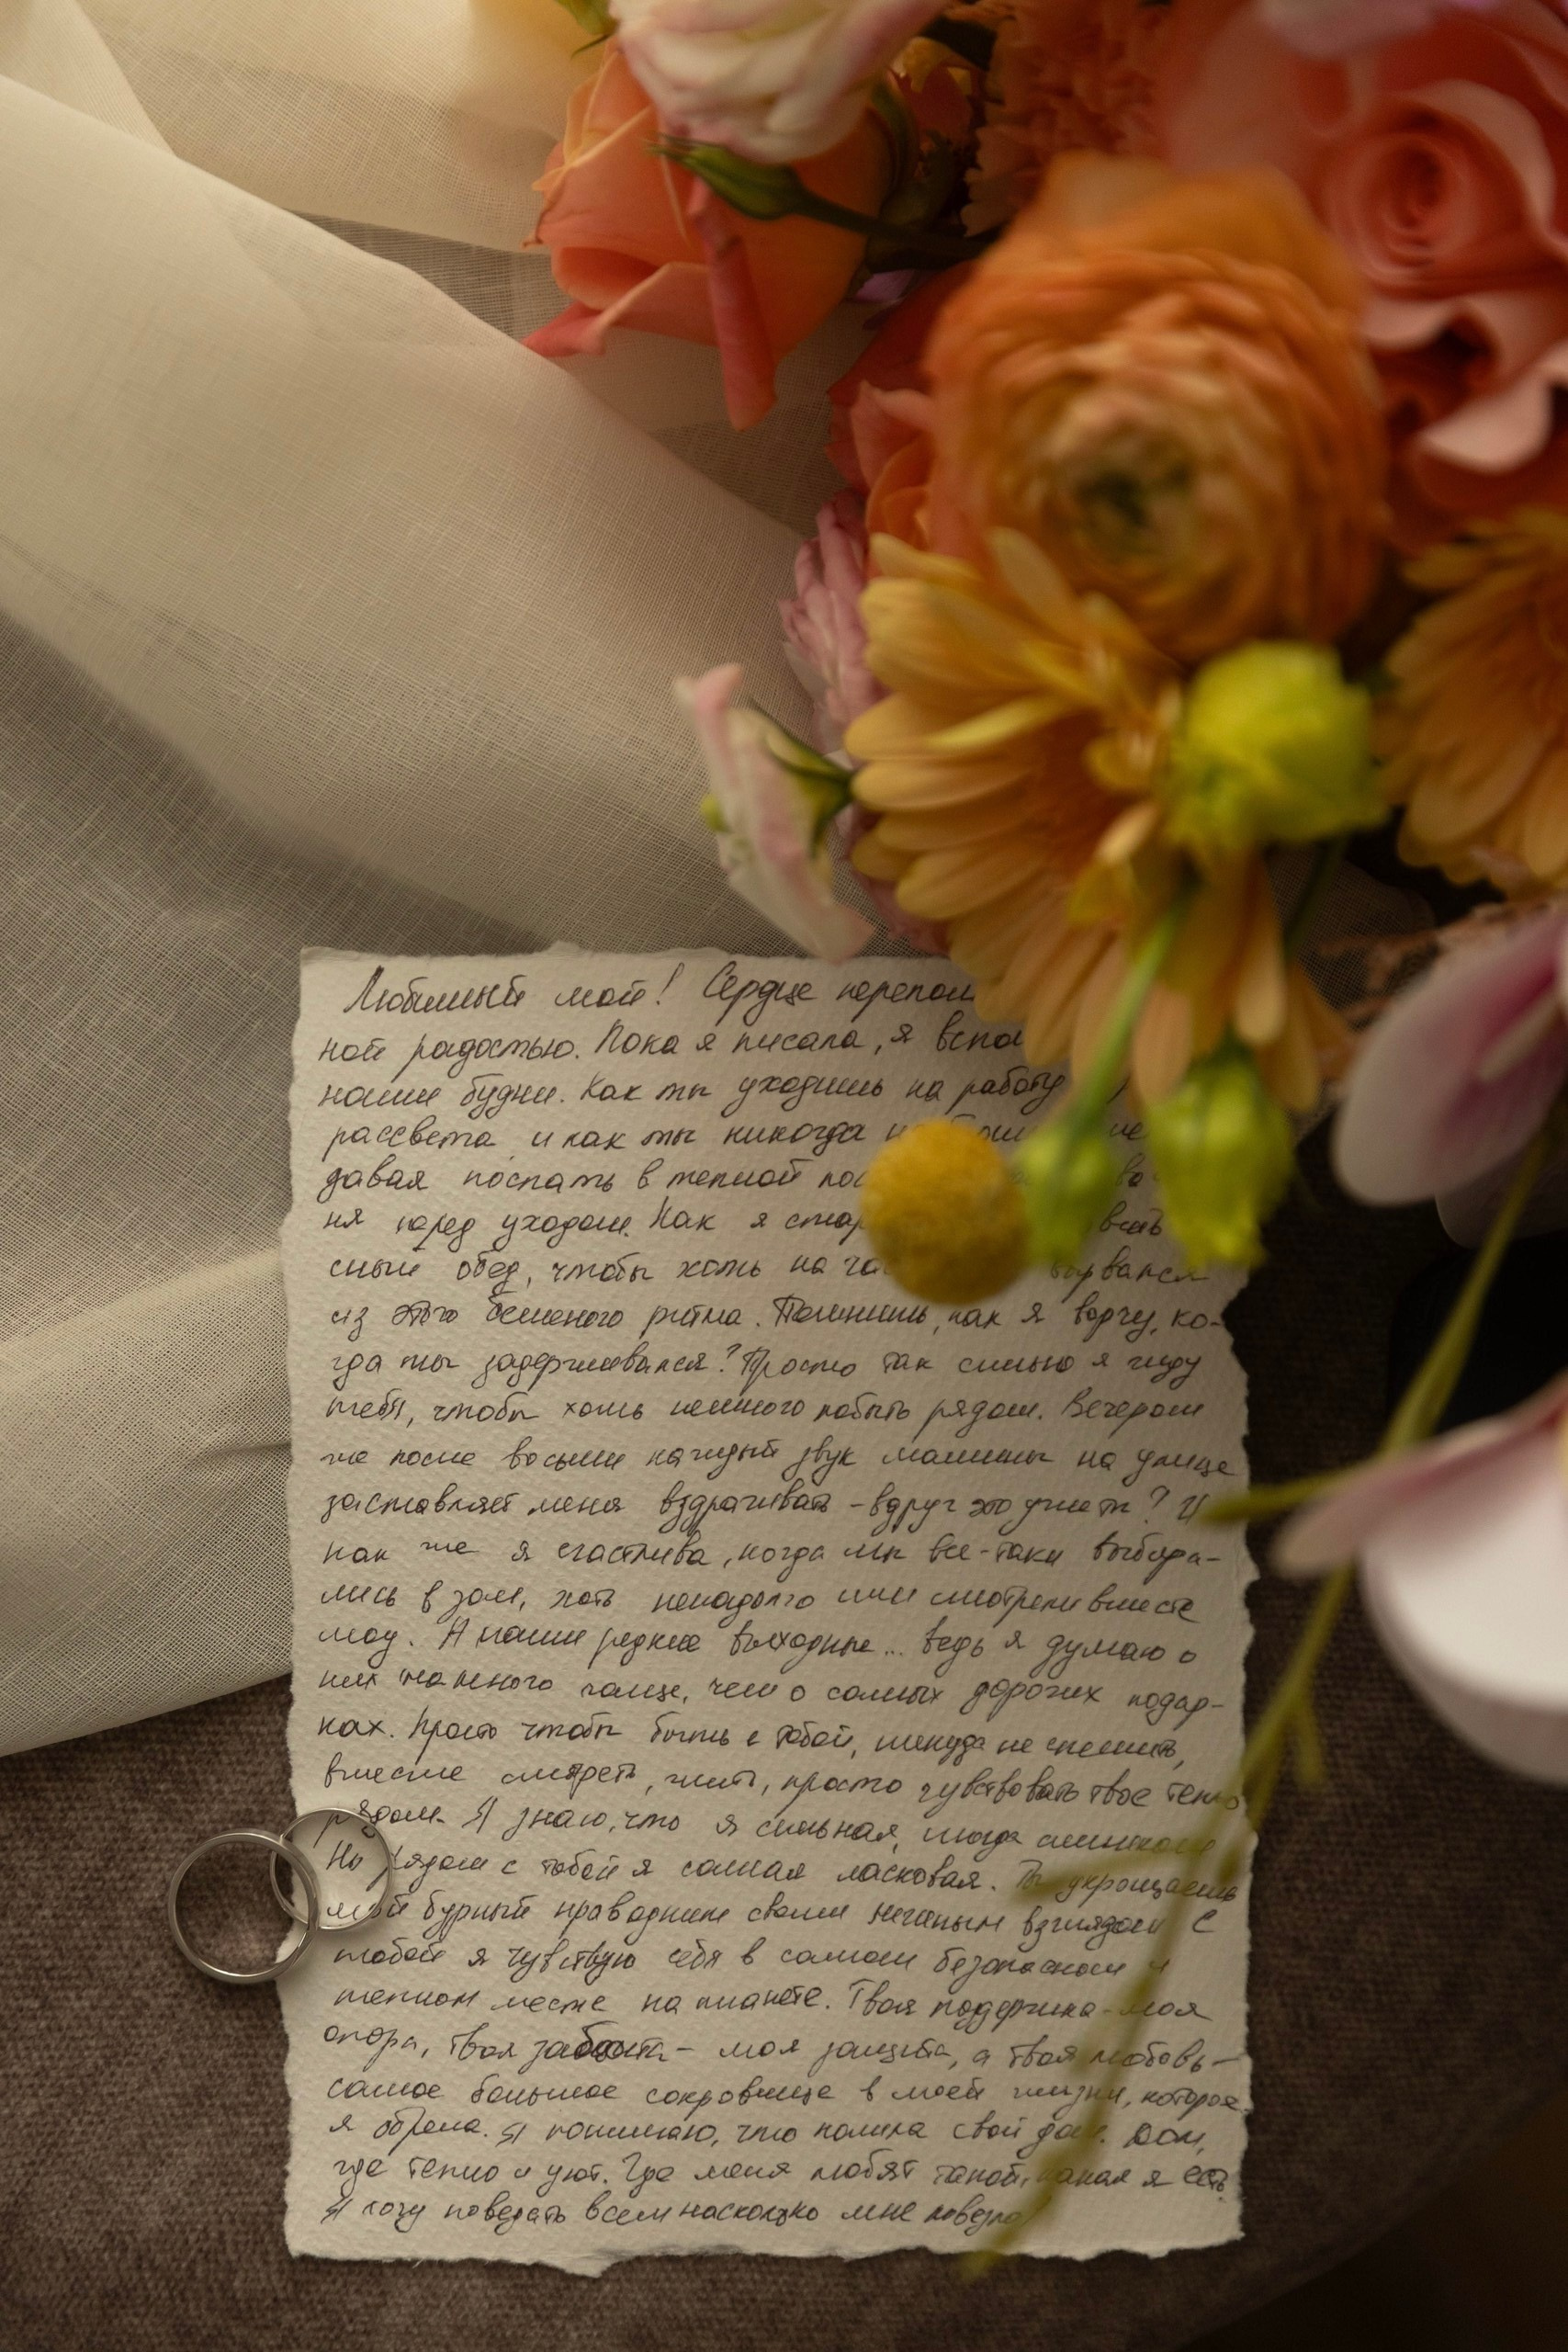 Любимый мой! Сердце перепол
ной радостью. Пока я писала, я вспо
наши будни. Как ты уходишь на работу
рассвета и как ты никогда
давая поспать в теплой пос
ня перед уходом. Как я стар
сный обед, чтобы хоть на час вырвался
из этого бешеного ритма. Помнишь, как я ворчу, ко-
гда ты задерживался? Просто так сильно я жду
тебя, чтобы хоть немного побыть рядом. Вечером
же после восьми каждый звук машины на улице
заставляет меня вздрагивать - вдруг это уже ты? И
как же я счастлива, когда мы все-таки выбира-
лись в зал, хоть ненадолго или смотрели вместе
шоу. А наши редкие выходные... ведь я думаю о
них намного чаще, чем о самых дорогих подар-
ках. Просто чтобы быть с тобой, никуда не спешить,
вместе смотреть, жить, просто чувствовать твое тепло
рядом. Я знаю, что я сильная, иногда слишком
Но рядом с тобой я самая ласковая. Ты укрощаешь
мой бурный праводник своим нежным взглядом С
тобой я чувствую себя в самом безопасном и
теплом месте на планете. Твоя поддержка - моя
опора, твоя забота - моя защита, а твоя любовь -
самое большое сокровище в моей жизни, которое
я обрела. Я понимаю, что нашла свой дом. Дом,
где тепло и уют. Где меня любят такой, какая я есть.
Я хочу поведать всем насколько мне повезло